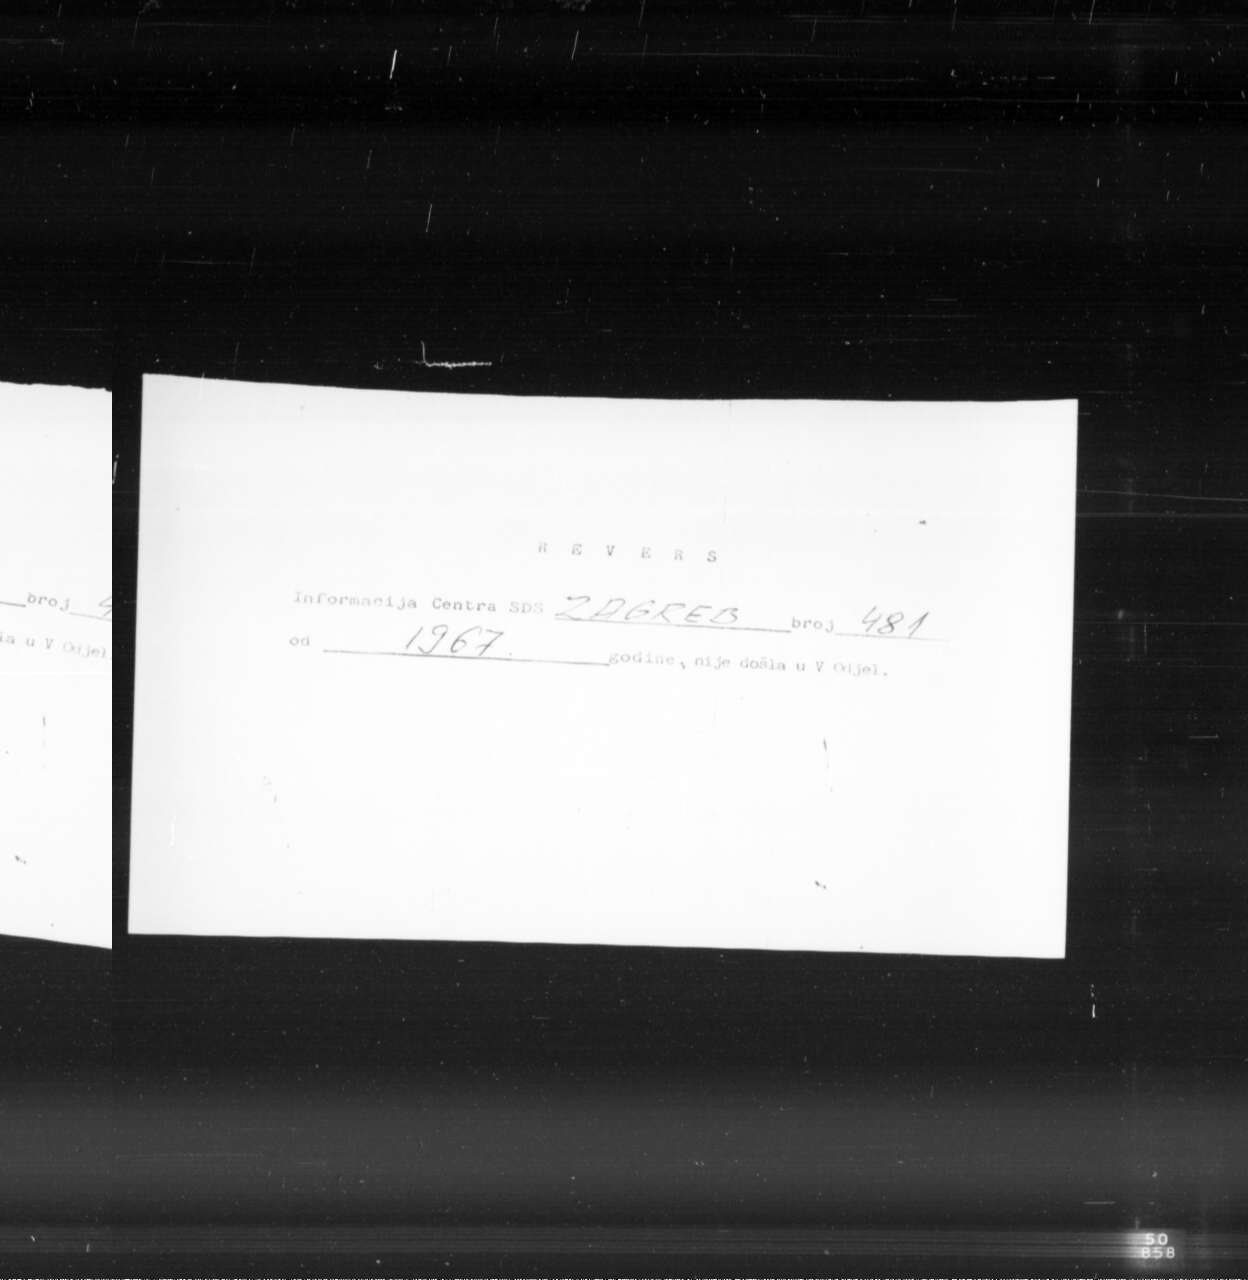 broj 4
la u V Odjel.
R E V E R S
Informacija Centra SDS ZAGREB broj 481
od 1967. godine, nije došla u V Odjel.
50
858